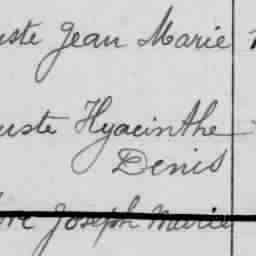 uste Jean Marie
uste Hyacinthe
Denis
Joseph Marie